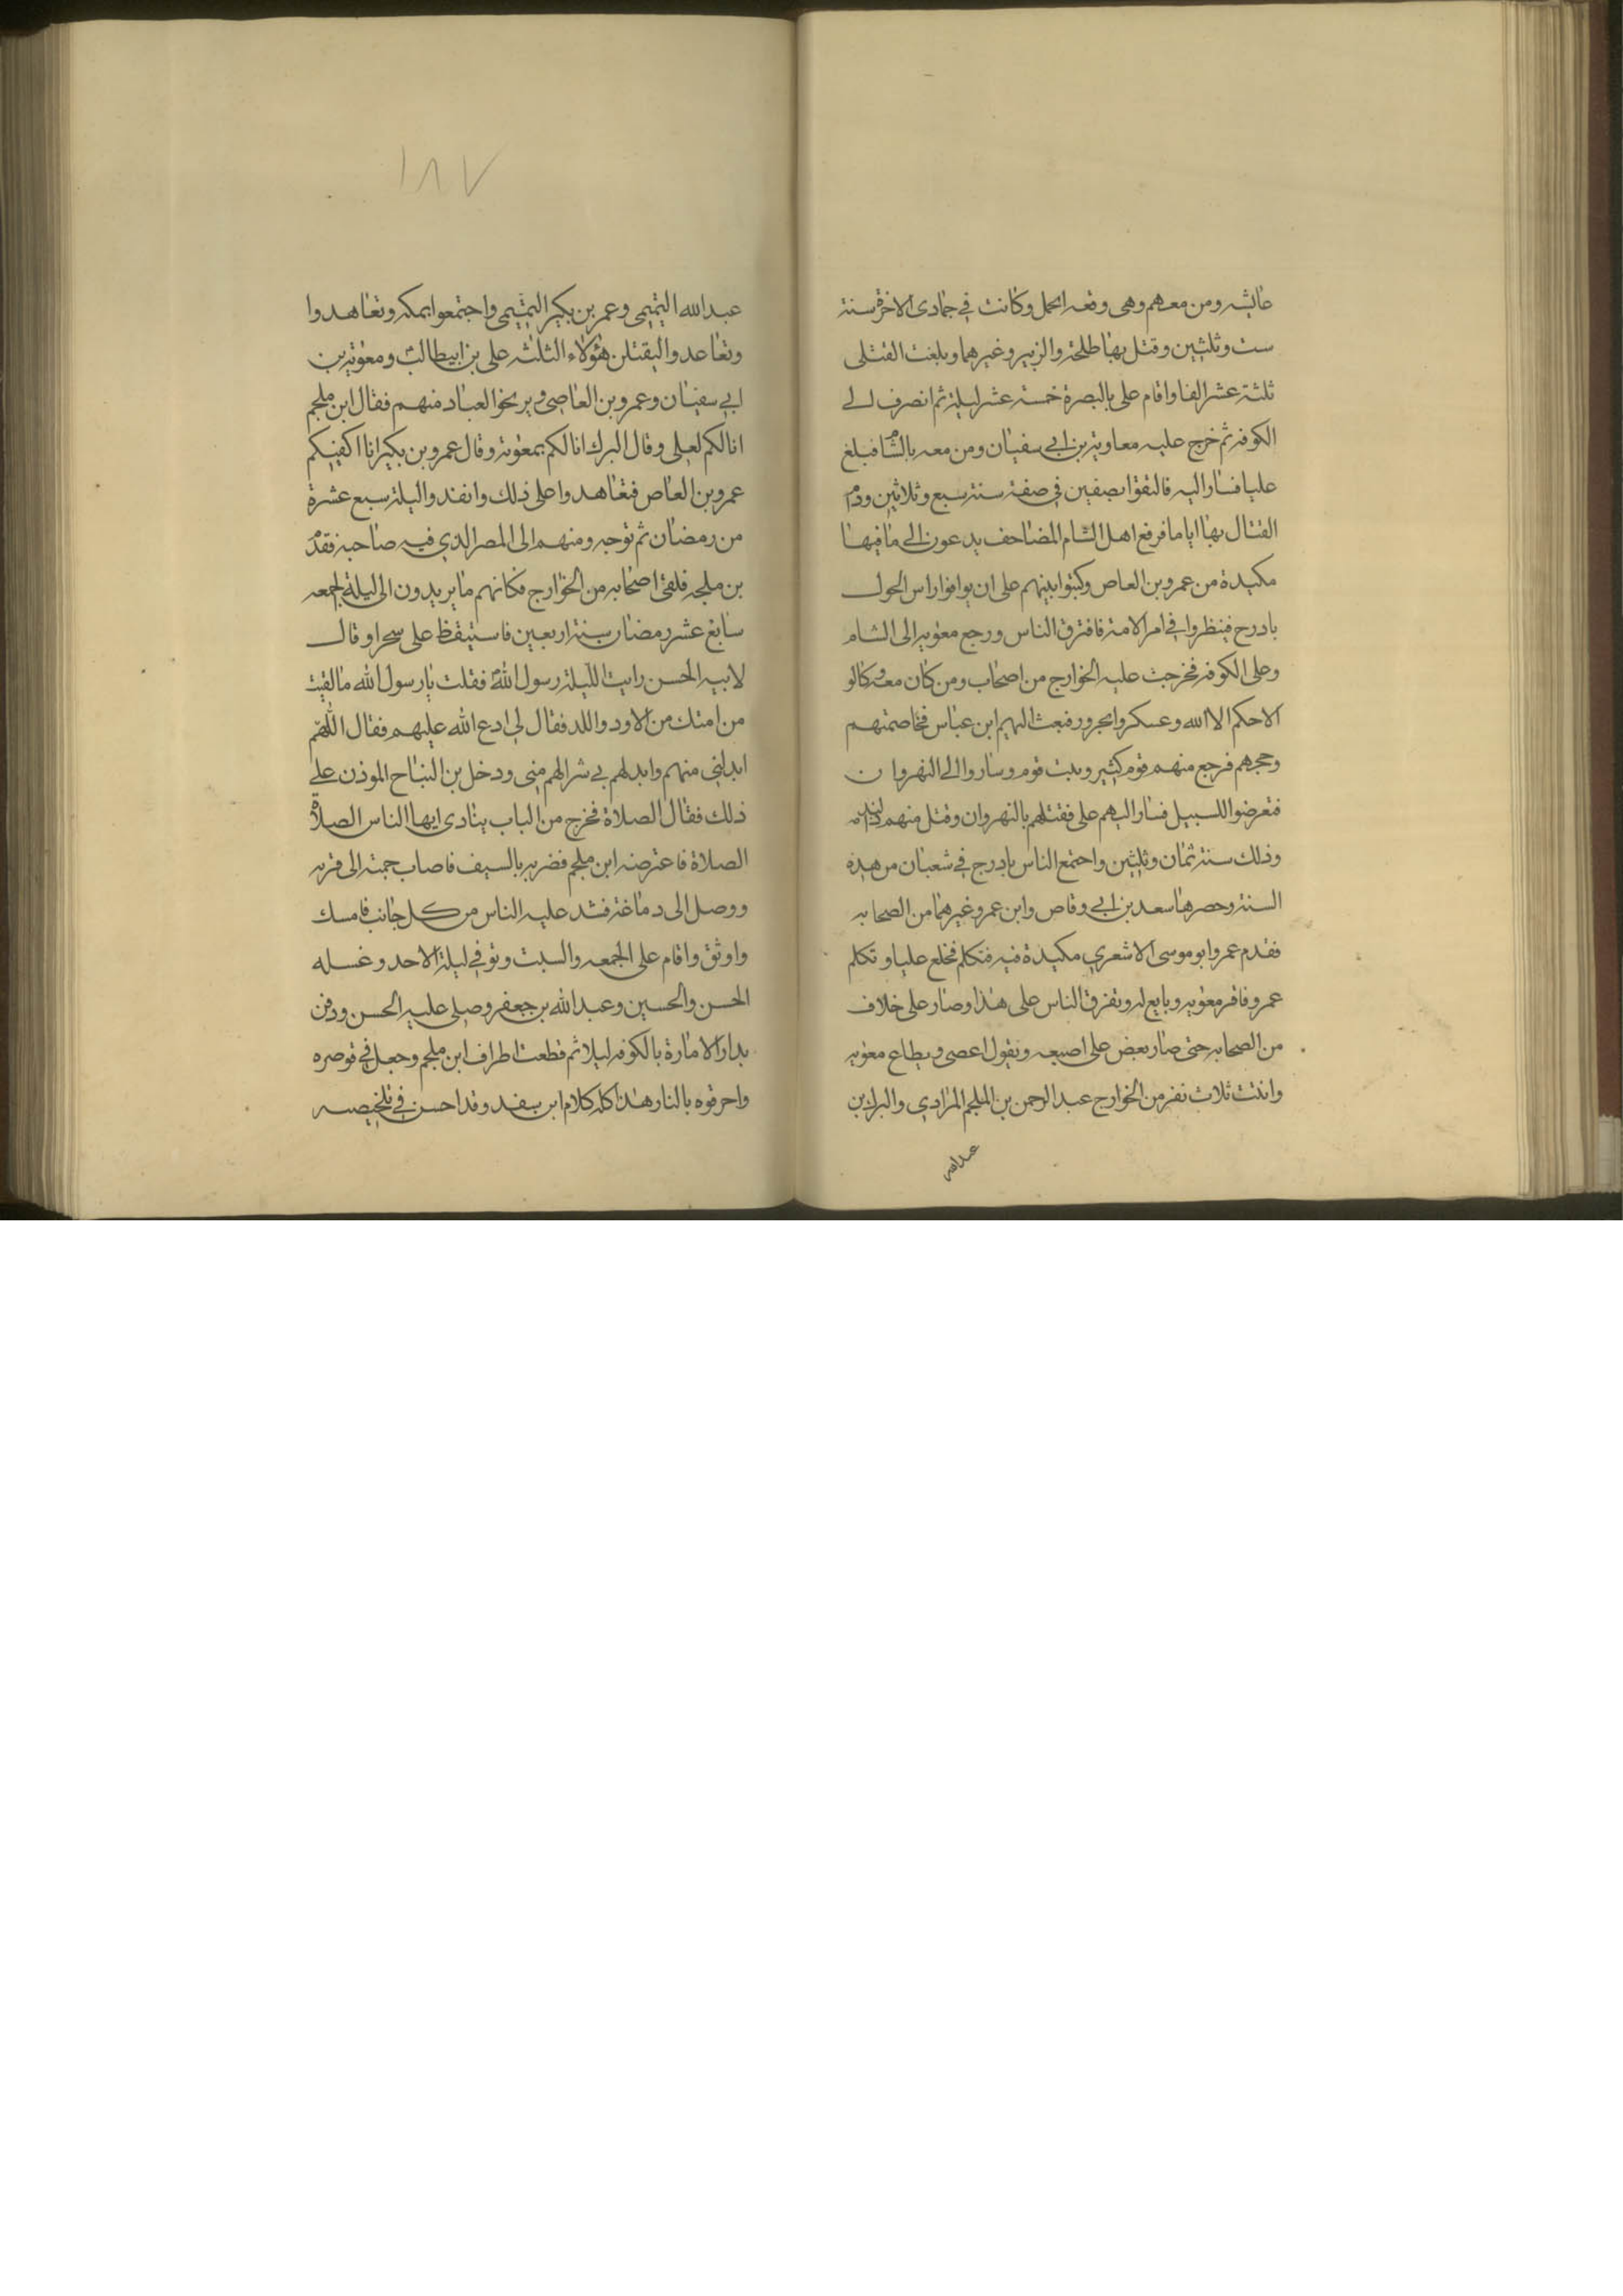 عايشه ومن معهم وهى وقعه الجمل وكانت في جمادى الاخرة سنة
ست وثلثين وقتل بها طلحة والزبير وغيرهما وبلغت القتلى
ثلثة عشر الفا واقام على بالبصرة خمسة عشر ليلة ثم انصرف الى
الكوفة ثم خرج عليه معاوية بن ابي سفيان ومن معه بالشام فبلغ
عليا فسار اليه فالتقوا بصفين في صفة سنة سبع وثلاثين ودام
القتال بها اياما فرفع اهل الشام المصاحف يدعون الى ما فيها
مكيدة من عمرو بن العاص وكتبوا بينهم على ان يوافوا راس الحول
بادرح فينظروا في امر الامة فافترق الناس ورجع معويه الى الشام
وعلى الكوفه فخرجت عليه الخوارج من اصحاب ومن كان معه وكالو
الاحكم الا الله وعسكروا بحرور فبعث اليهم ابن عباس فخاصمتهم
وحجهم فرجع منهم قوم كثير وبت قوم وساروا الى النهروان
فتعرضوا للسبيل فسار اليهم على فقتلهم بالنهروان وقتل منهم
وذلك سنة ثمان وثلثين واجتمع الناس بادرج في شعبان من هذه
السنة وحصرها سعد بن ابي وقاص وابن عمر وغيرهما من الصحابه
فقدم عمرو ابو موسى الاشعري مكيدة فيه فتكلم فخلع عليا وتكلم
عمرو فاقر معويه وبايع له وتفرق الناس على هذا وصار على خلاف
من الصحابه حتى صار بعض على اصبعه ويقول اعصى ويطاع معويه
وانتدت ثلاث نفر من الخوارج عبد الرحمن بن الملجم المرادي والبراك بن
عبدالله
١٨٧
عبد الله التميمى وعمر بن بكير التميمى واجتمعوا بمكه وتعاهدوا
وتعاعدوا ليقتلن هؤلاء الثلثه على بن ابيطالب ومعوية بن
ابي سفيان وعمرو بن العاصى ويريحوا العباد منهم فقال ابن ملجم
انا لكم لعلى وقال البرك انا لكم بمعوية وقال عمرو بن بكير انا اكفيكم
عمرو بن العاص فتعاهدوا على ذلك وانفدوا ليلة سبع عشرة
من رمضان ثم توجه ومنهم الى المصر الدي فيه صاحبه فقدم
بن ملجه فلقى اصحابه من الخوارج فكانهم ما يريدون الى ليلة الجمعه
سابع عشر رمضان سنة اربعين فاستيقظ على سحرا وقال
لابيه الحسن رايت الليلة رسول الله فقلت يا رسول الله ما لقيت
من امتك من الاود واللد فقال لى ادع الله عليهم فقال اللهم
ابدلنى منهم وابدلهم بي شرا لهم منى ودخل بن النباح الموذن على
ذلك فقال الصلاة فخرج من الباب ينادى ايها الناس الصلاة
الصلاة فاعترضه ابن ملجم فضربه بالسيف فاصاب جبهته الى قرنه
ووصل الى دماغة فشد عليه الناس من كل جانب فامسك
واوثق واقام على الجمعه والسبت وتوفي ليلة الاحد وغسله
الحسن والحسين وعبد الله بن جعفر وصلى عليه الحسن ودفن
بدار الامارة بالكوفه ليلا ثم قطعت اطراف ابن ملجم وجعل في قوصره
واحرقوه بالنار هذا كله كلام ابن سفد وقد احسن في تلخيصه